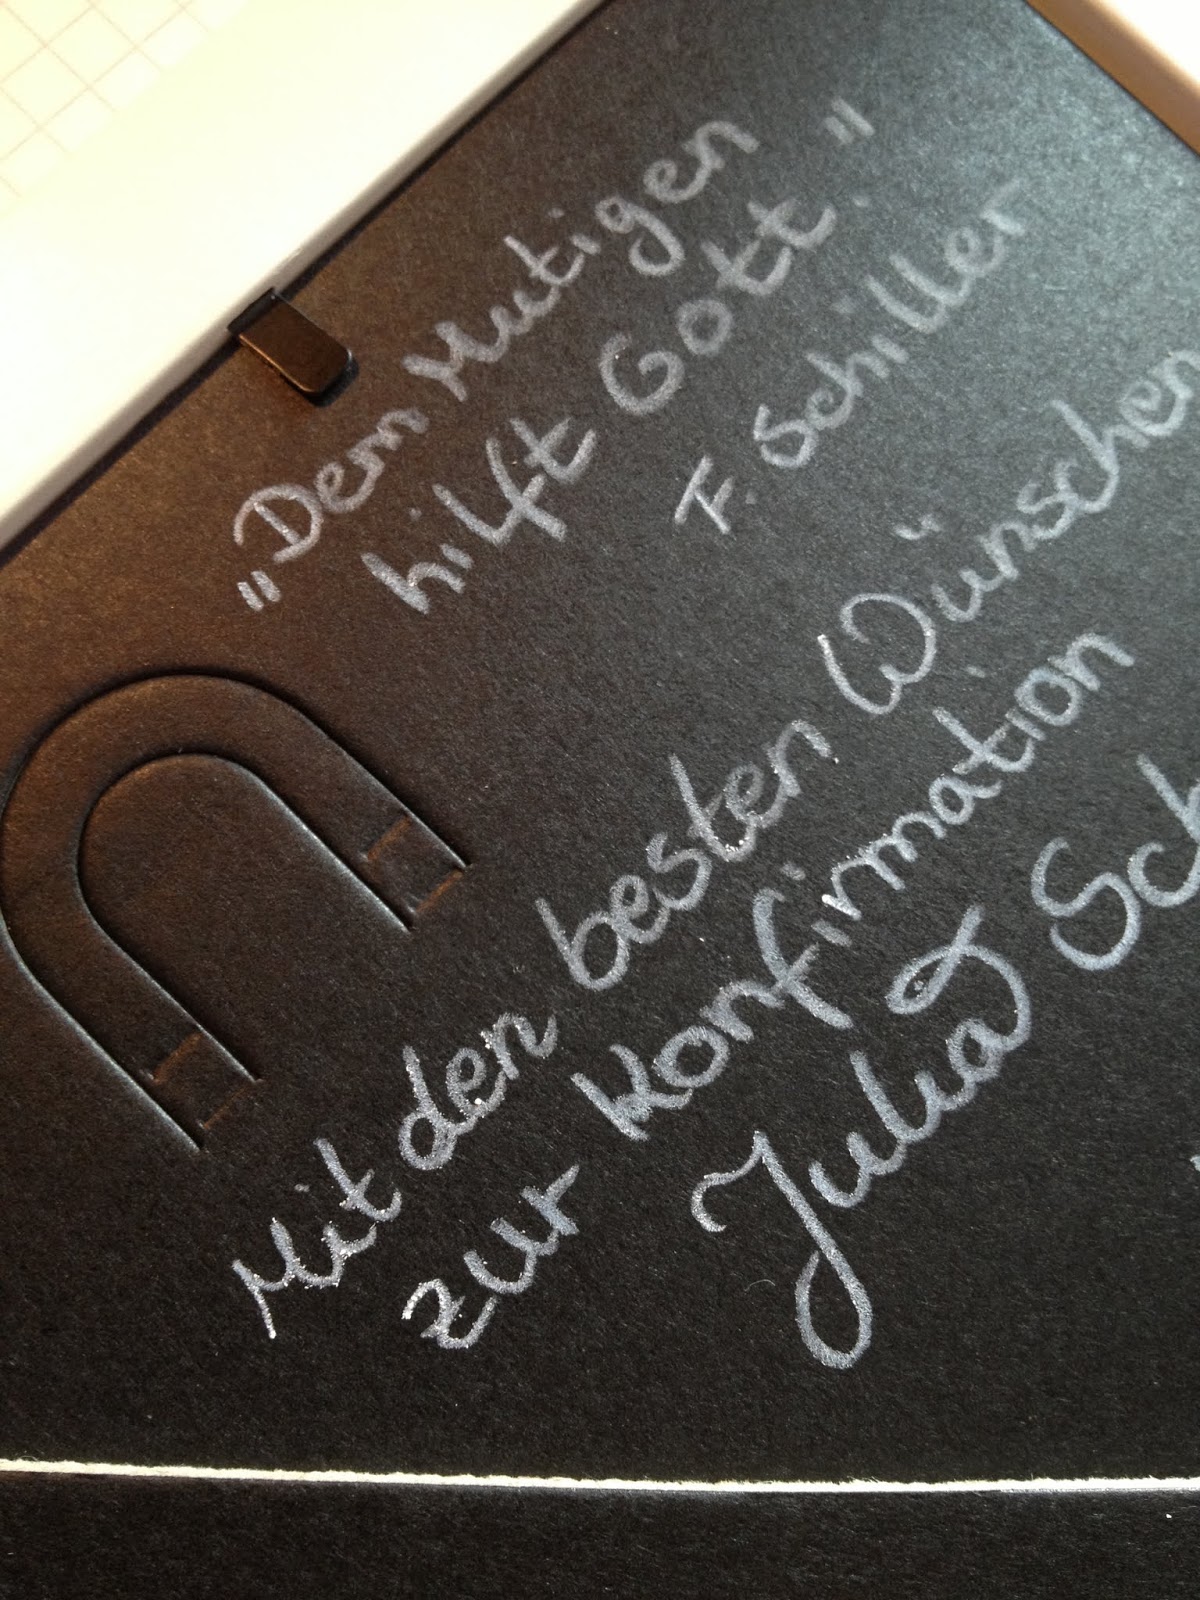 „Dem Mutigen
hilft Gott."
F. Schiller
Mit den besten Wünschen
zur Konfirmation
Julia Sch